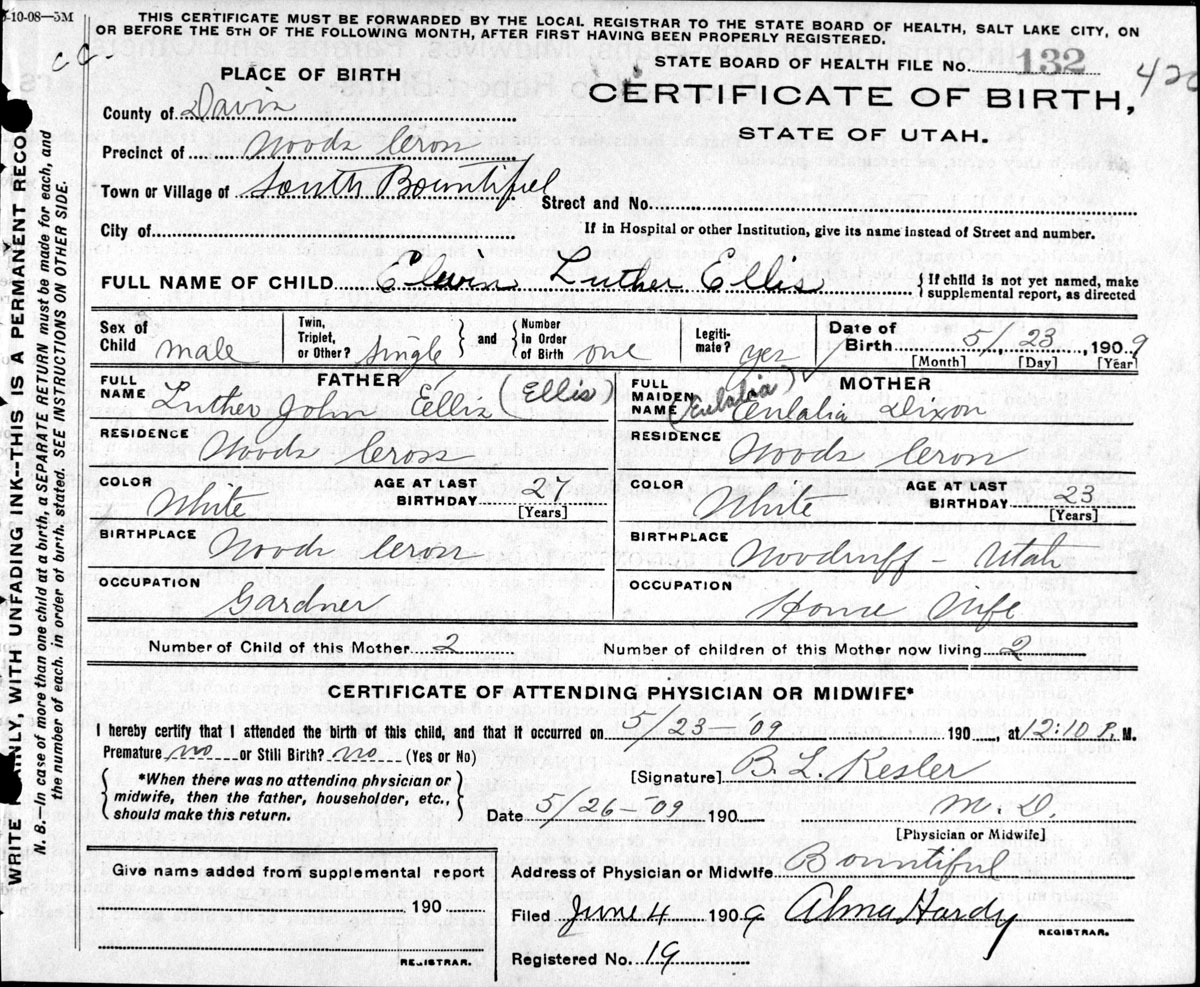 -10-08—5M
THIS CERTIFICATE MUST BE FORWARDED BY THE LOCAL REGISTRAR TO THE STATE BOARD OF HEALTH, SALT LAKE CITY, ON
OR BEFORE THE 5TH OF THE FOLLOWING MONTH, AFTER FIRST HAVING BEEN PROPERLY REGISTERED.
c c.
STATE BOARD OF HEALTH FILE No. 132
420
PLACE OF BIRTH
CERTIFICATE OF BIRTH,
STATE OF UTAH.
County of Davis
Precinct of Woods Cross
Town or Village of South Bountiful
Street and No.
City of
If in Hospital or other Institution, give its name instead of Street and number.
FULL NAME OF CHILD Elwin Luther Ellis
{If child is not yet named, make
supplemental report, as directed
Sex of Child male
Twin, Triplet, or Other? single } and { Number In Order of Birth one
Legiti-mate? yes
Date of Birth 5/ 23, 1909
[Month] [Day] [Year]
FATHER
FULL NAME Luther John Ellis (Ellis)
MOTHER
FULL MAIDEN NAME (Eulalia) Eulalia Dixon
RESIDENCE Woods Cross
RESIDENCE Woods Cross
COLOR White AGE AT LAST BIRTHDAY 27 [Years]
COLOR White AGE AT LAST BIRTHDAY 23 [Years]
BIRTHPLACE Woods Cross
BIRTHPLACE Woodruff - Utah
OCCUPATION Gardner
OCCUPATION House Wife
Number of Child of this Mother 2
Number of children of this Mother now living 2
CERTIFICATE OF ATTENDING PHYSICIAN OR MIDWIFE*
I hereby certify that I attended the birth of this child, and that it occurred on 5/23-'09 190, at 12:10 P. M.
Premature no or Still Birth? no (Yes or No)
{ *When there was no attending physician or
midwife, then the father, householder, etc.,
should make this return. }
[Signature] B. L. Kesler
Date 5/26-'09 190
M. D.
[Physician or Midwife]
Give name added from supplemental report
190
REGISTRAR.
Address of Physician or Midwife Bountiful
Filed June 4 1909 Alma Hardy
REGISTRAR.
Registered No. 19
WRITE PLAINLY, WITH UNFADING INK--THIS IS A PERMANENT RECO
N. B.—In case of more than one child at a birth, a SEPARATE RETURN must be made for each, and
the number of each. in order of birth. stated. SEE INSTRUCTIONS ON OTHER SIDE.